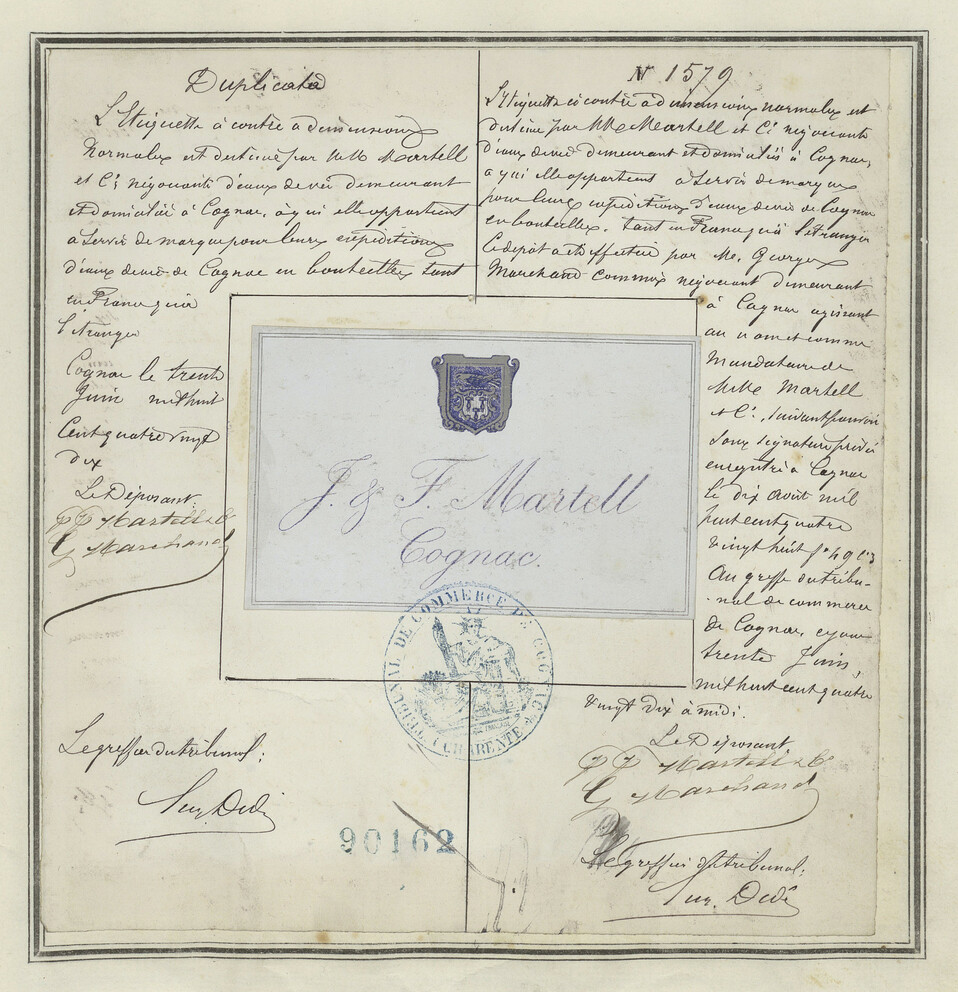 Duplicata
L'Etiquette ci contre a dimensions
Normales est destinée par MM Martell
et Cie négociants d'eaux de vie demeurant
et domiciliés à Cognac, à qui elle appartient
à servir de marque pour leurs expéditions
d'eaux de vie de Cognac en bouteilles tant
en France qu'à
l'étranger
Cognac le trente
Juin mil huit
Cent quatre vingt
dix
Le Déposant.
PP Martell & Co
G Marchand
Le greffier du tribunal:
N 1579
L'Etiquette ci contre a dimensions normales est
destinée par MM Martell et Cie négociants
d'eaux de vie demeurant et domiciliés à Cognac,
a qui elle appartient à servir de marque
pour leurs expéditions d'eaux de vie de Cognac
en bouteilles, tant en France qu'à l'étranger
Le dépôt a été effectué par Mr. Georges
Marchand commis négociant demeurant
à Cognac agissant
au nom et comme
Mandataire de
MM Martell
et Cie, suivant pouvoir
sous signature privée
enregistré à Cognac
le dix Août mil
huit cent quatre
vingt huit fo 49 Co 3
Au greffe du tribu-
-nal de commerce
de Cognac, ce jour
trente Juin,
mil huit cent quatre
vingt dix à midi.
Le Déposant
PP Martell & Co
G Marchand
Le greffier du tribunal:
J. & F. Martell
Cognac.
TRIBUNAL DE COMMERCE DE COGNAC
(CHARENTE)
90162